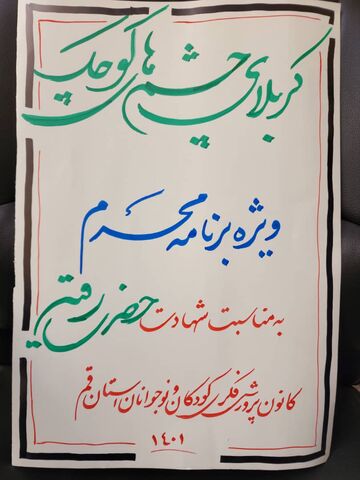 کربلای چشم های کوچک
ویژه برنامه محرم
به مناسبت شهادت حضرت رقیه
کانون پرورش فکری کودکان و نوجوانان استان قم
۱۴۰۱